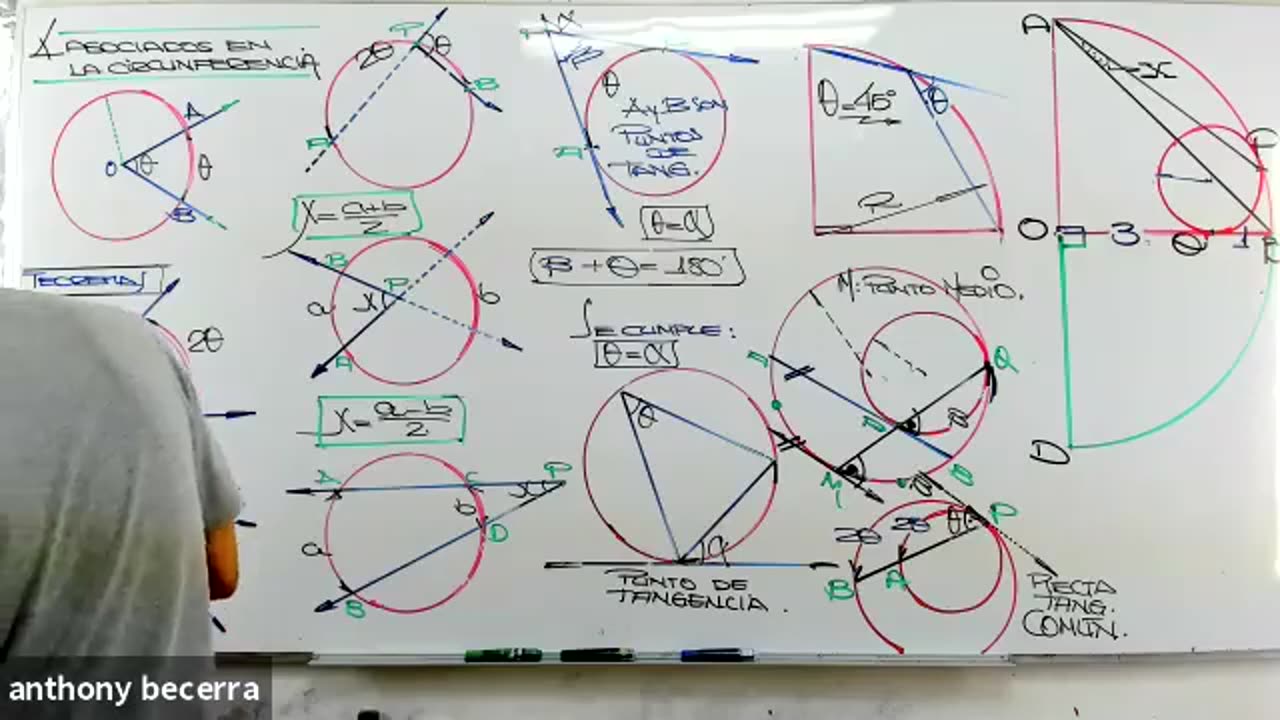 ∡ ASOCIADOS EN
LA CIRCUNFERENCIA
A
O
θ
θ
B
TEOREMAS
2θ
P
2θ
θ
B
A
X = a+b/2
B
P
a
X
b
A
X = a-b/2
A
C
P
X
b
D
a
B
β
θ
A y B SON
PUNTOS
DE
TANG.
A
θ = α
β + θ = 180°
SE CUMPLE:
θ = α
θ
α
PUNTO DE
TANGENCIA.
θ = 45°
θ
R
M: PUNTO MEDIO.
A
Q
P
B
M
2θ
2θ
θ
P
B
A
RECTA
TANG.
COMÚN.
A
x
P
O
3
Q
1
B
D
anthony becerra